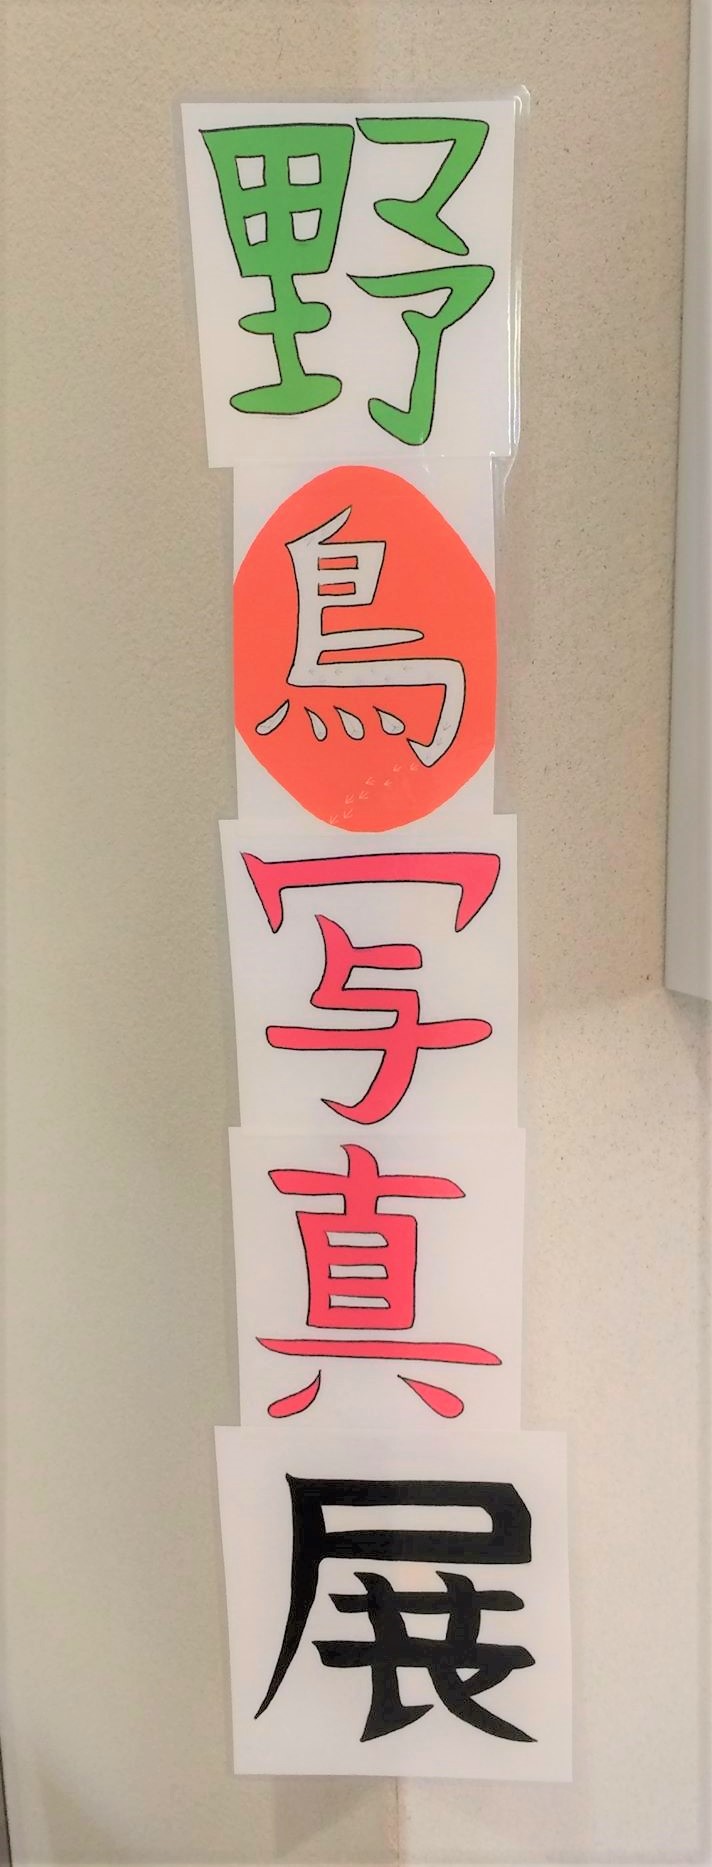 野鳥写真展